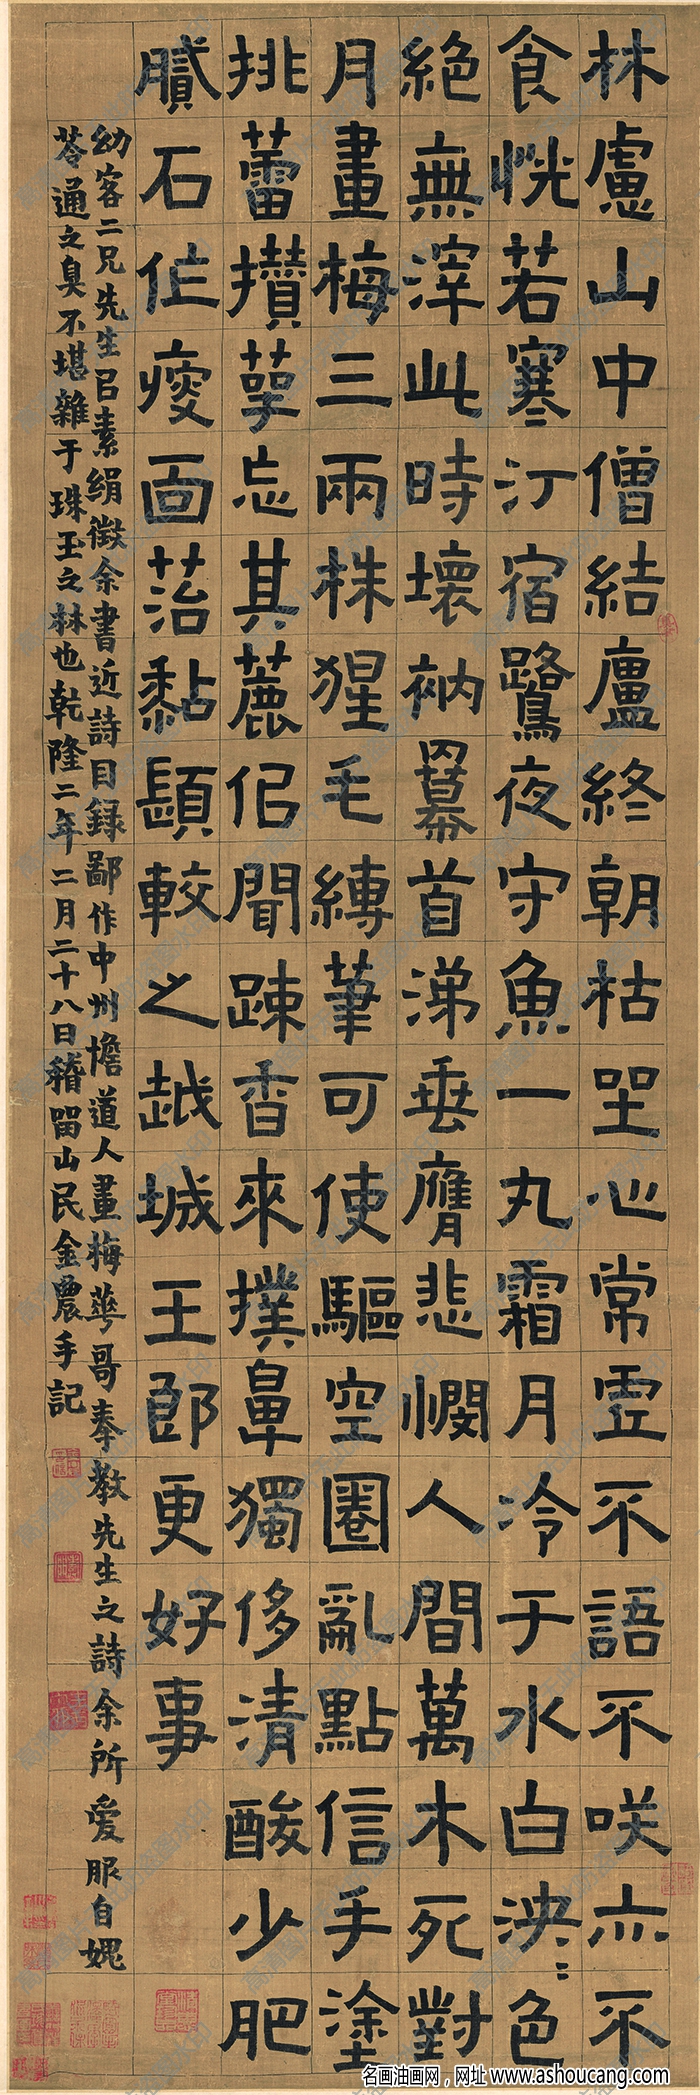 林慮山中僧結廬終朝枯坐心常霊不語不咲亦不
食恍若寒汀宿鷺夜守魚一丸霜月冷于水白泱〻色
絶無滓此時壞衲冪首涕垂膺悲憫人間萬木死對
月畫梅三兩株猩毛縳筆可使驅空圈亂點信手塗
挑蕾攢萼忘其麤但聞疎香來撲鼻獨侈清酸少肥
膩石作瘦面苔黏顋較之越城王郎更好事
幼客二兄先生㠯素絹徵余書近詩目録鄙作中州憺道人畫梅華哥奉教先生之詩余所愛服自媿
苓通之臭不堪雜于珠玉之林也乾隆二年二月二十八日稽留山民金農手記
名画油画网，网址 www.ashoucang.com